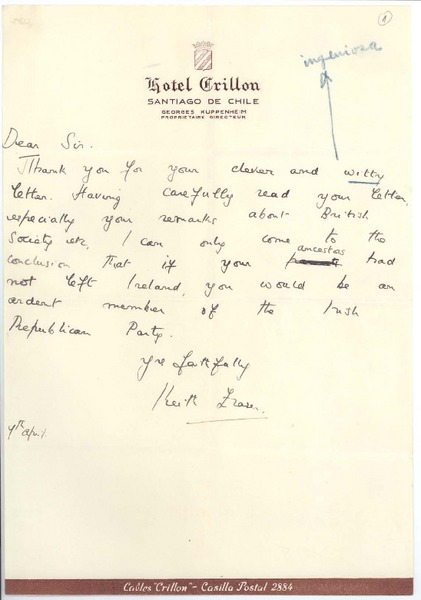 1
ingeniosa
Hotel Crillon
SANTIAGO DE CHILE
GEORGES KUPPENHEIM
PROPRIETAIRE DIRECTEUR
Dear Sir.
Thank you for your clever and witty
letter. Having carefully read your letter,
especially your remarks about British
Society etc, I can only come to the
conclusion that if your ancestos had
not left Ireland, you would be an
ardent member of the Irish
Republican Party.
Yrs faithfully
Keith Fraser.
9th April.
Cables "Crillon" - Casilla Postal 2884